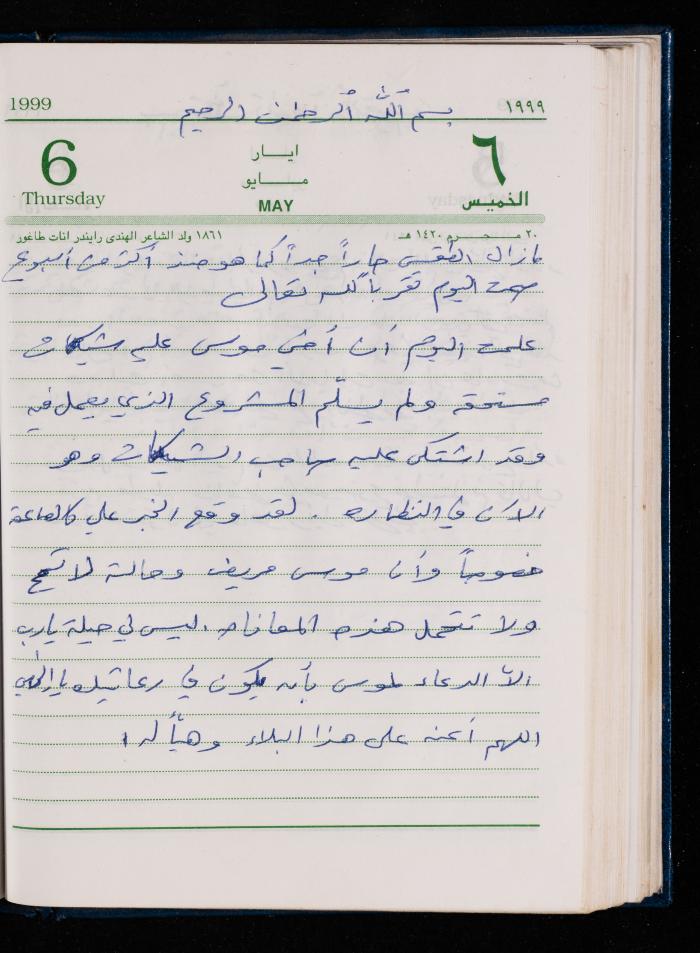 1999 بسم الله الرحمن الرحيم ١٩٩٩
6 ايـــار ٦
مـــايو
Thursday MAY الخميس
٢٠ محـــرم ١٤٢٠ هـ ١٨٦١ ولد الشاعر الهندى رايندر انات طاغور
مازال الطقس حاراً جداً كما هو منذ أكثر من أسبوع
صمت اليوم تقرباً لله تعالى
علمت اليوم أن أخي موسى عليه شيكات
مستحقه ولم يسلّم المشروع الذي يعمل فيه
وقد اشتكى عليه صاحب الشيكات وهو
الآن في النظاره . لقد وقع الخبر علي كالصاعقة
خصوصاً وأن موسى مريض وحالته لا تسمح
ولا تتحمل هذه المعاناه . ليس لي حيلة يارب
الاّ الدعاء لموسى بأنه يكون في رعايتك يا إلهي
اللهم أعنه على هذا البلاء وهيأ له